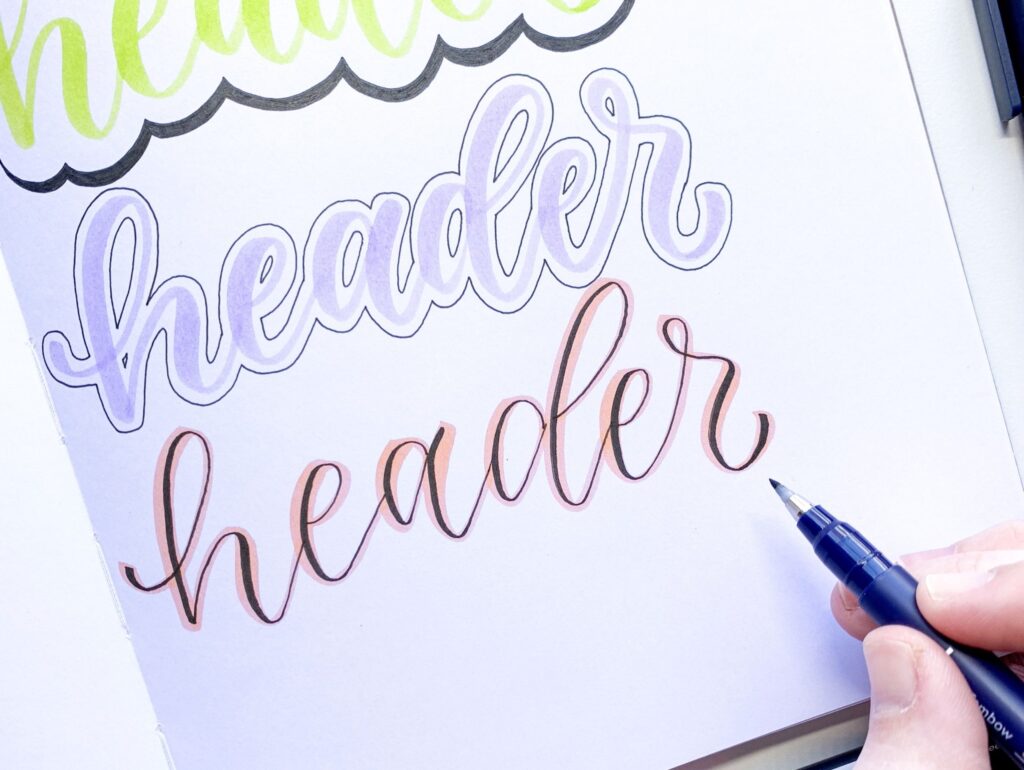 header
header
header